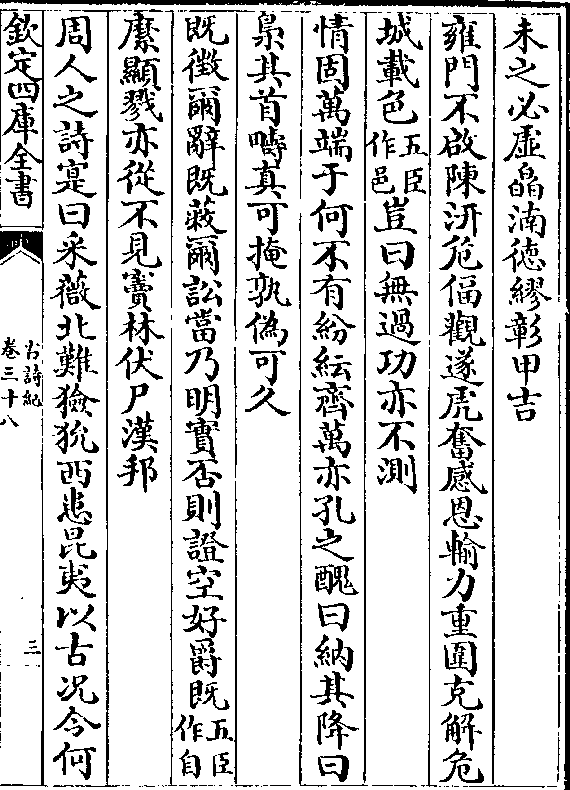 未之必虛皛湳德繆彰甲吉
雍門不啟陳汧危偪觀遂虎奮感恩輸力重圍克解危
城載色五臣作邑豈曰無過功亦不測
情固萬端于何不有紛紜齊萬亦孔之醜曰納其降曰
梟其首疇真可掩孰偽可久
既徵爾辭既蔽爾訟當乃明實否則證空好爵既五臣作自
縻顯戮亦從不見竇林伏尸漢邦
周人之詩寔曰采薇北難獫狁西患昆夷以古况今何
欽定四庫全書
古詩紀
卷三十八
三